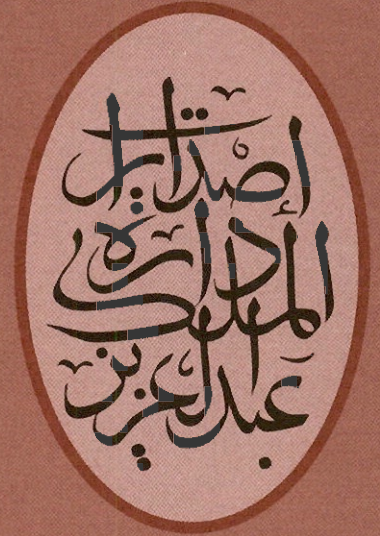 إصدارات
دارة الملك
عبدالعزيز